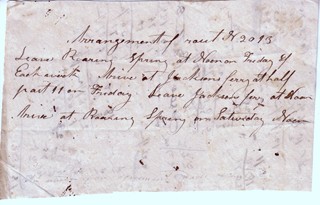 Arrangement of rout N 2013
Leave Roaring Spring at Noon on Friday of
Each week Arive at Jacksons ferry at half
past 11 on Friday Leave Jacksons ferry at Noon
Arive at Roaring Spring on Saturday Noon